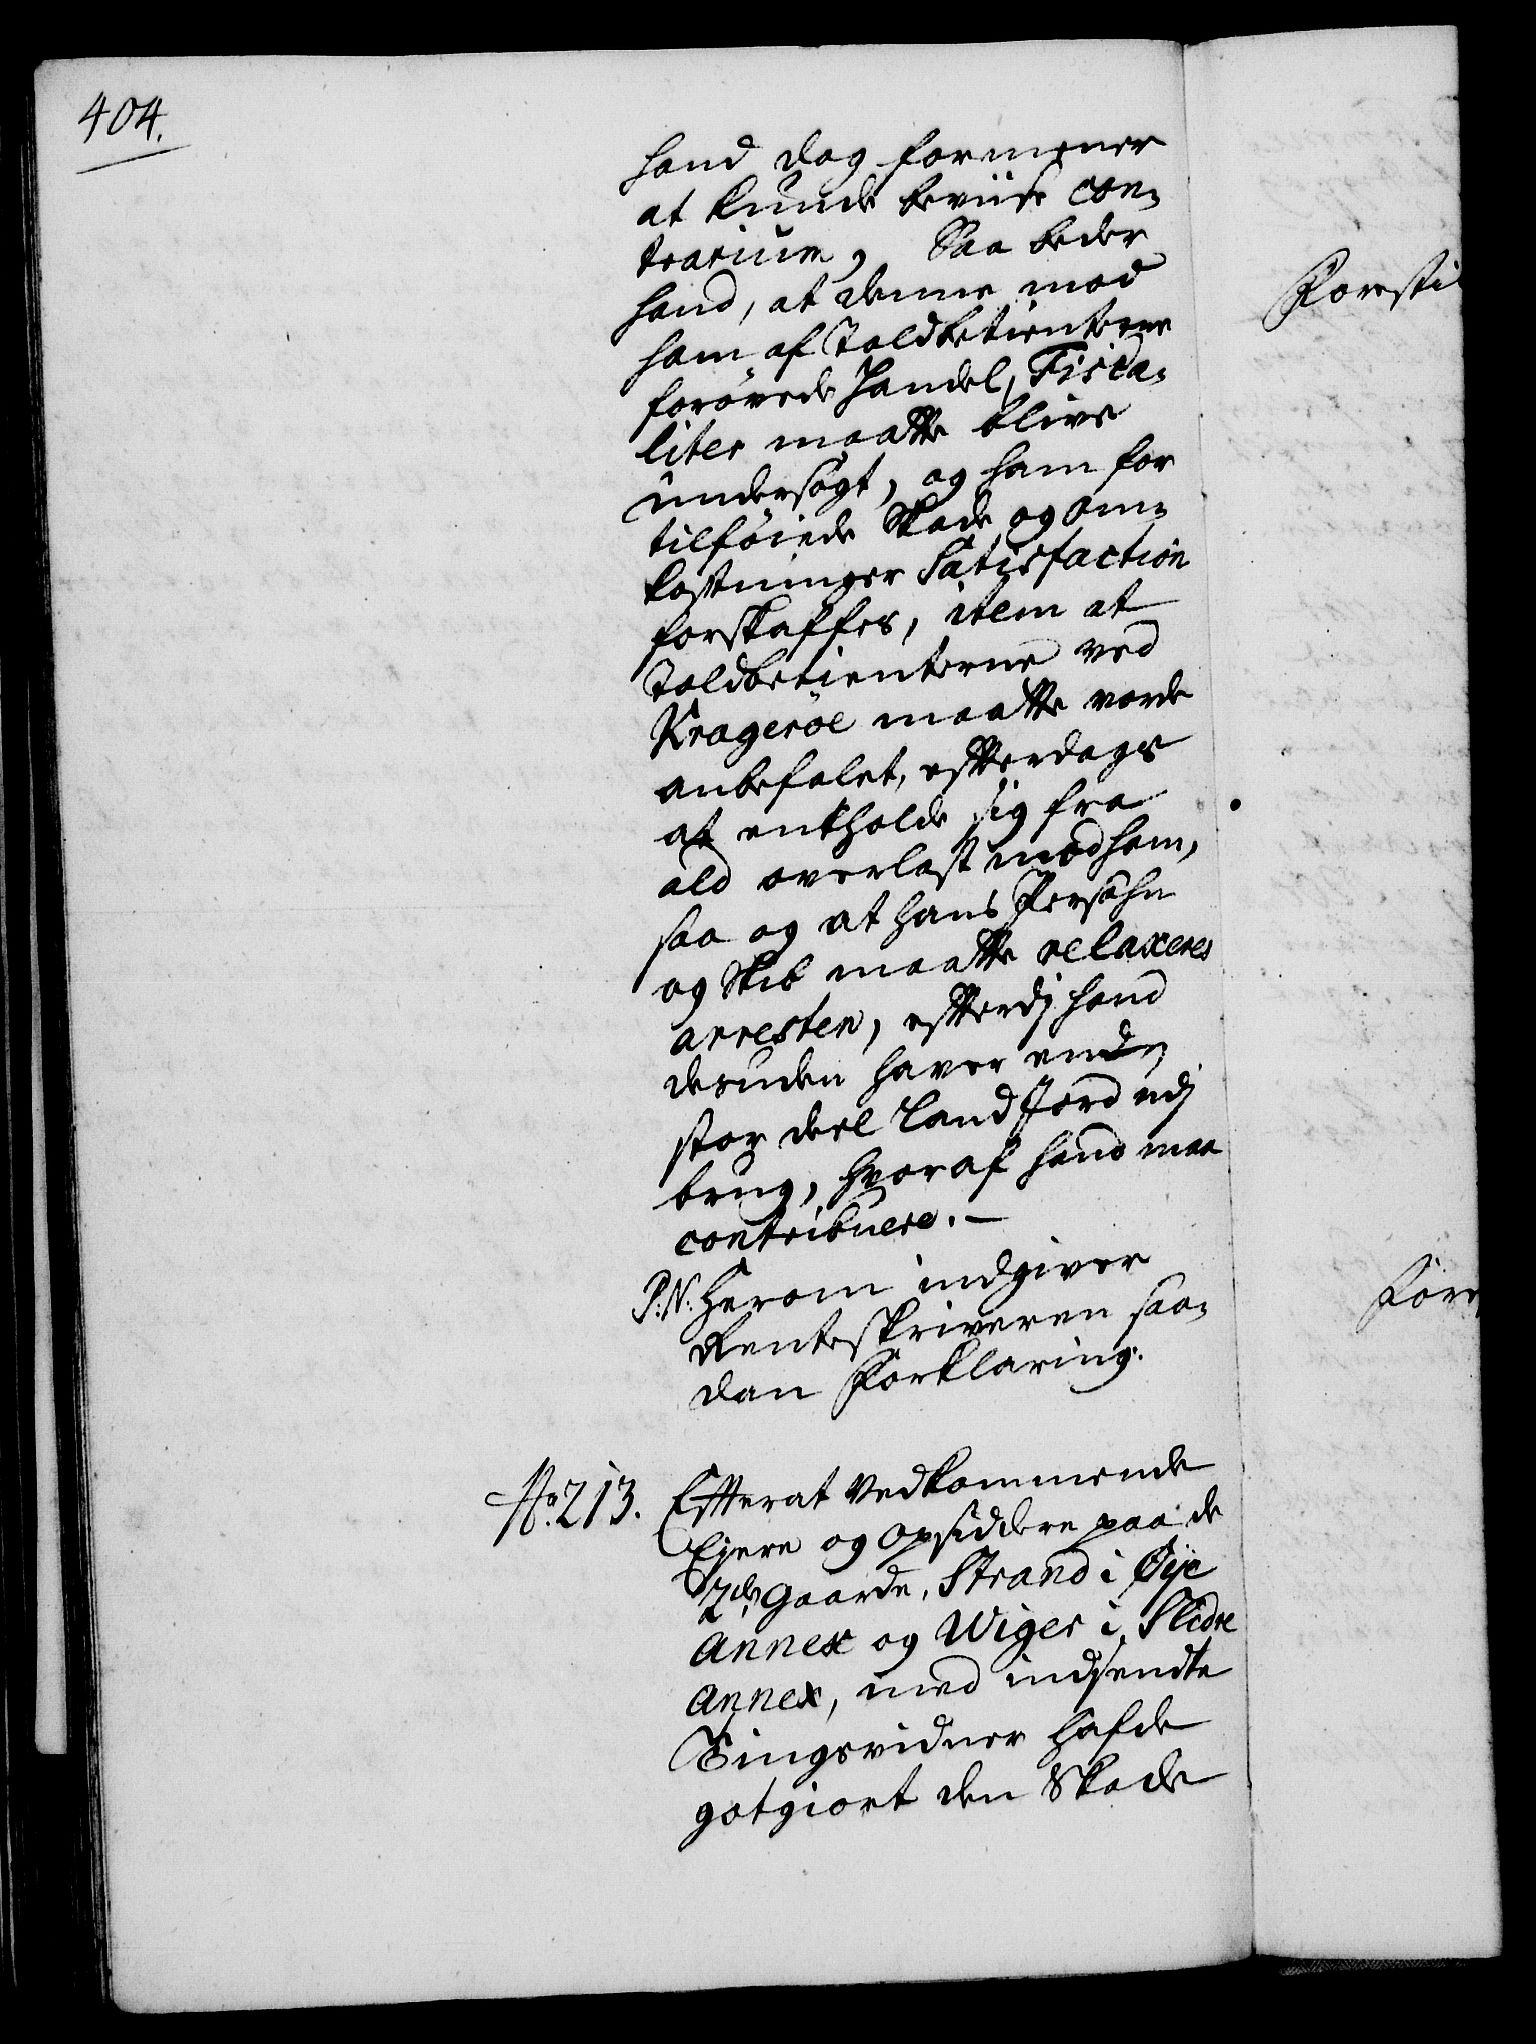 404.
hand dog formener
at kunde beviise con-
trarium, Saa beder
hand, at denne mod
ham af Toldbetienterne
forøvede Handel, Fisca-
liter maatte blive
undersøgt, og ham for
tilføiede Skade og om-
kostninger Satisfaction
forskaffes, item at
Toldbetienterne ved
Kragerøe maatte vorde
anbefalet, effterdags
at entholde sig fra
ald overlast mod ham,
saa og at hans Persohn
og Skib maatte relaxeres
arresten, effterdj hand
desuden haver ende
stor deel Land Jord udj
brug, hvoraf hand maa
contribuere. -
P: N: Herom indgiver
Renteskriveren saa-
dan Forklaring.
No. 213. Effterat Vedkommende
Ejere og Opsiddere paa de
2de Gaarde, Strand i Øije
Annex og Wiger i Slidre
Annex, med indsendte
Tingsvidner hafde
gotgiort den Skade
Foresti
Fore